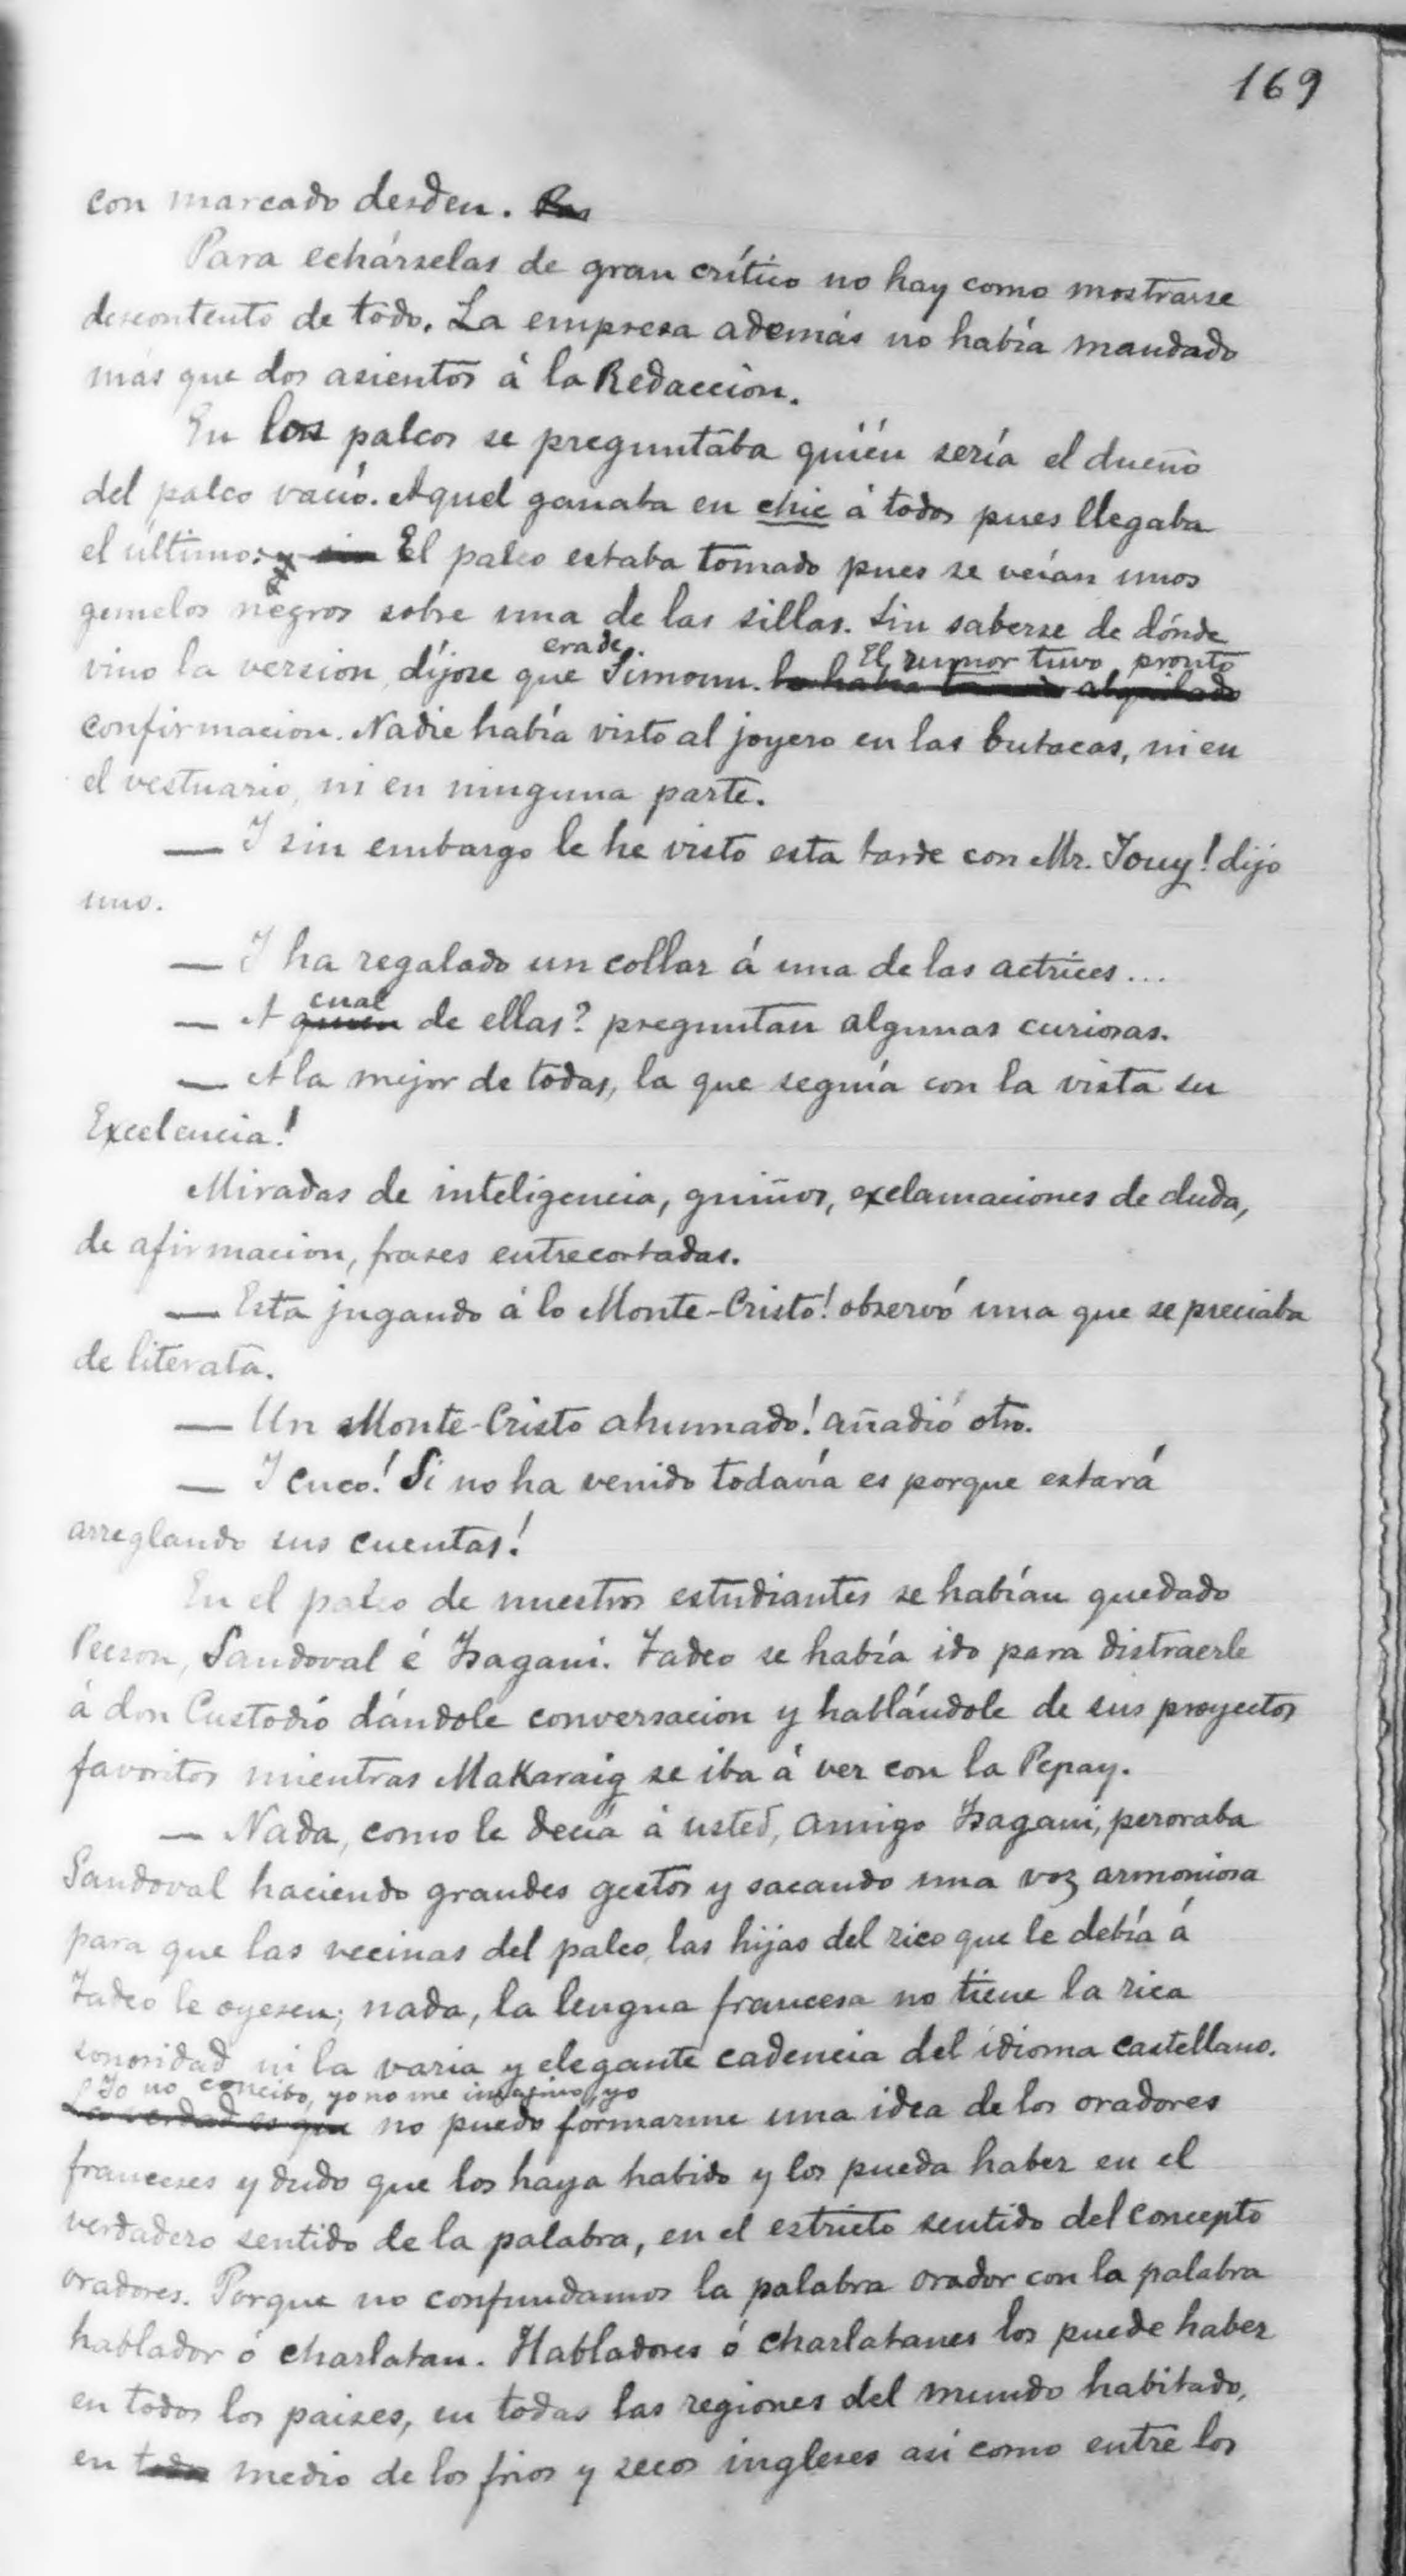 169
con marcado desden.
Para echárselas de gran crítico no hay como mostrarse
descontento de todo. La empresa además no había mandado
más que dos asientos á la Redaccion.
En los palcos se preguntaba quién sería el dueño
del palco vacío. Aquel ganaba en chic á todos pues llegaba
el último: El palco estaba tomado pues se veían unos
gemelos negros sobre una de las sillas. Sin saberse de dónde
era de El rumor tuvo pronto
vino la version, díjose que Simoun. lo había alquilado
confirmacion. Nadie había visto al joyero en las butacas, ni en
el vestuario, ni en ninguna parte.
— Y sin embargo le he visto esta tarde con Mr. Jouy! dijo
uno.
— Y ha regalado un collar á una de las actrices...
cual
— A quien de ellas? preguntan algunas curiosas.
— A la mejor de todas, la que seguía con la vista su
Excelencia!
Miradas de inteligencia, guiños, exclamaciones de duda,
de afirmacion, frases entrecortadas.
— Esta jugando á lo Monte-Cristo! observó una que se preciaba
de literata.
— Un Monte-Cristo ahumado! añadió otro.
— Y cuco! Si no ha venido todavía es porque estará
arreglando sus cuentas!
En el palco de nuestros estudiantes se habían quedado
Pecson, Sandoval é Isagani. Tadeo se había ido para distraerle
á don Custodio dándole conversacion y hablándole de sus proyectos
favoritos mientras Makaraig se iba á ver con la Pepay.
— Nada, como le decía á usted, amigo Isagani, peroraba
Sandoval haciendo grandes gestos y sacando una voz armoniosa
para que las vecinas del palco, las hijas del rico que le debía á
Tadeo le oyesen; nada, la lengua francesa no tiene la rica
sonoridad ni la varia y elegante cadencia del idioma castellano.
Yo no concibo, yo no me imagino, yo
La verdad es que no puedo formarme una idea de los oradores
franceses y dudo que los haya habido y los pueda haber en el
verdadero sentido de la palabra, en el estricto sentido del concepto
oradores. Porque no confundamos la palabra orador con la palabra
hablador ó charlatan. Habladores ó charlatanes los puede haber
en todos los paises, en todas las regiones del mundo habitado,
en medio de los frios y secos ingleses así como entre los